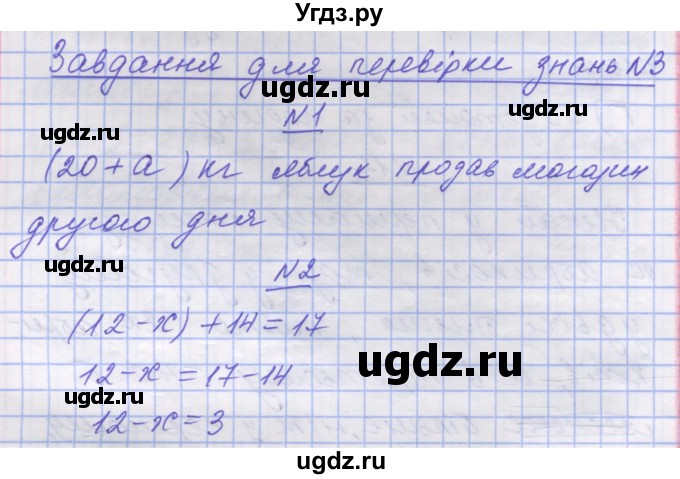 Угдз.ру
Завдання для перевірки знань №3
ugdz.ru
№1
ugdz.ru
ugdz.ru
(20 + а) кг яблук продав магазин
другого дня
ugdz.ru
ugdz.ru
№2
(12 - х) + 14 = 17
ugdz.ru
12 - х = 17 - 14
ugdz.ru
12 - х = 3
ugdz.ru
ugdz.ru